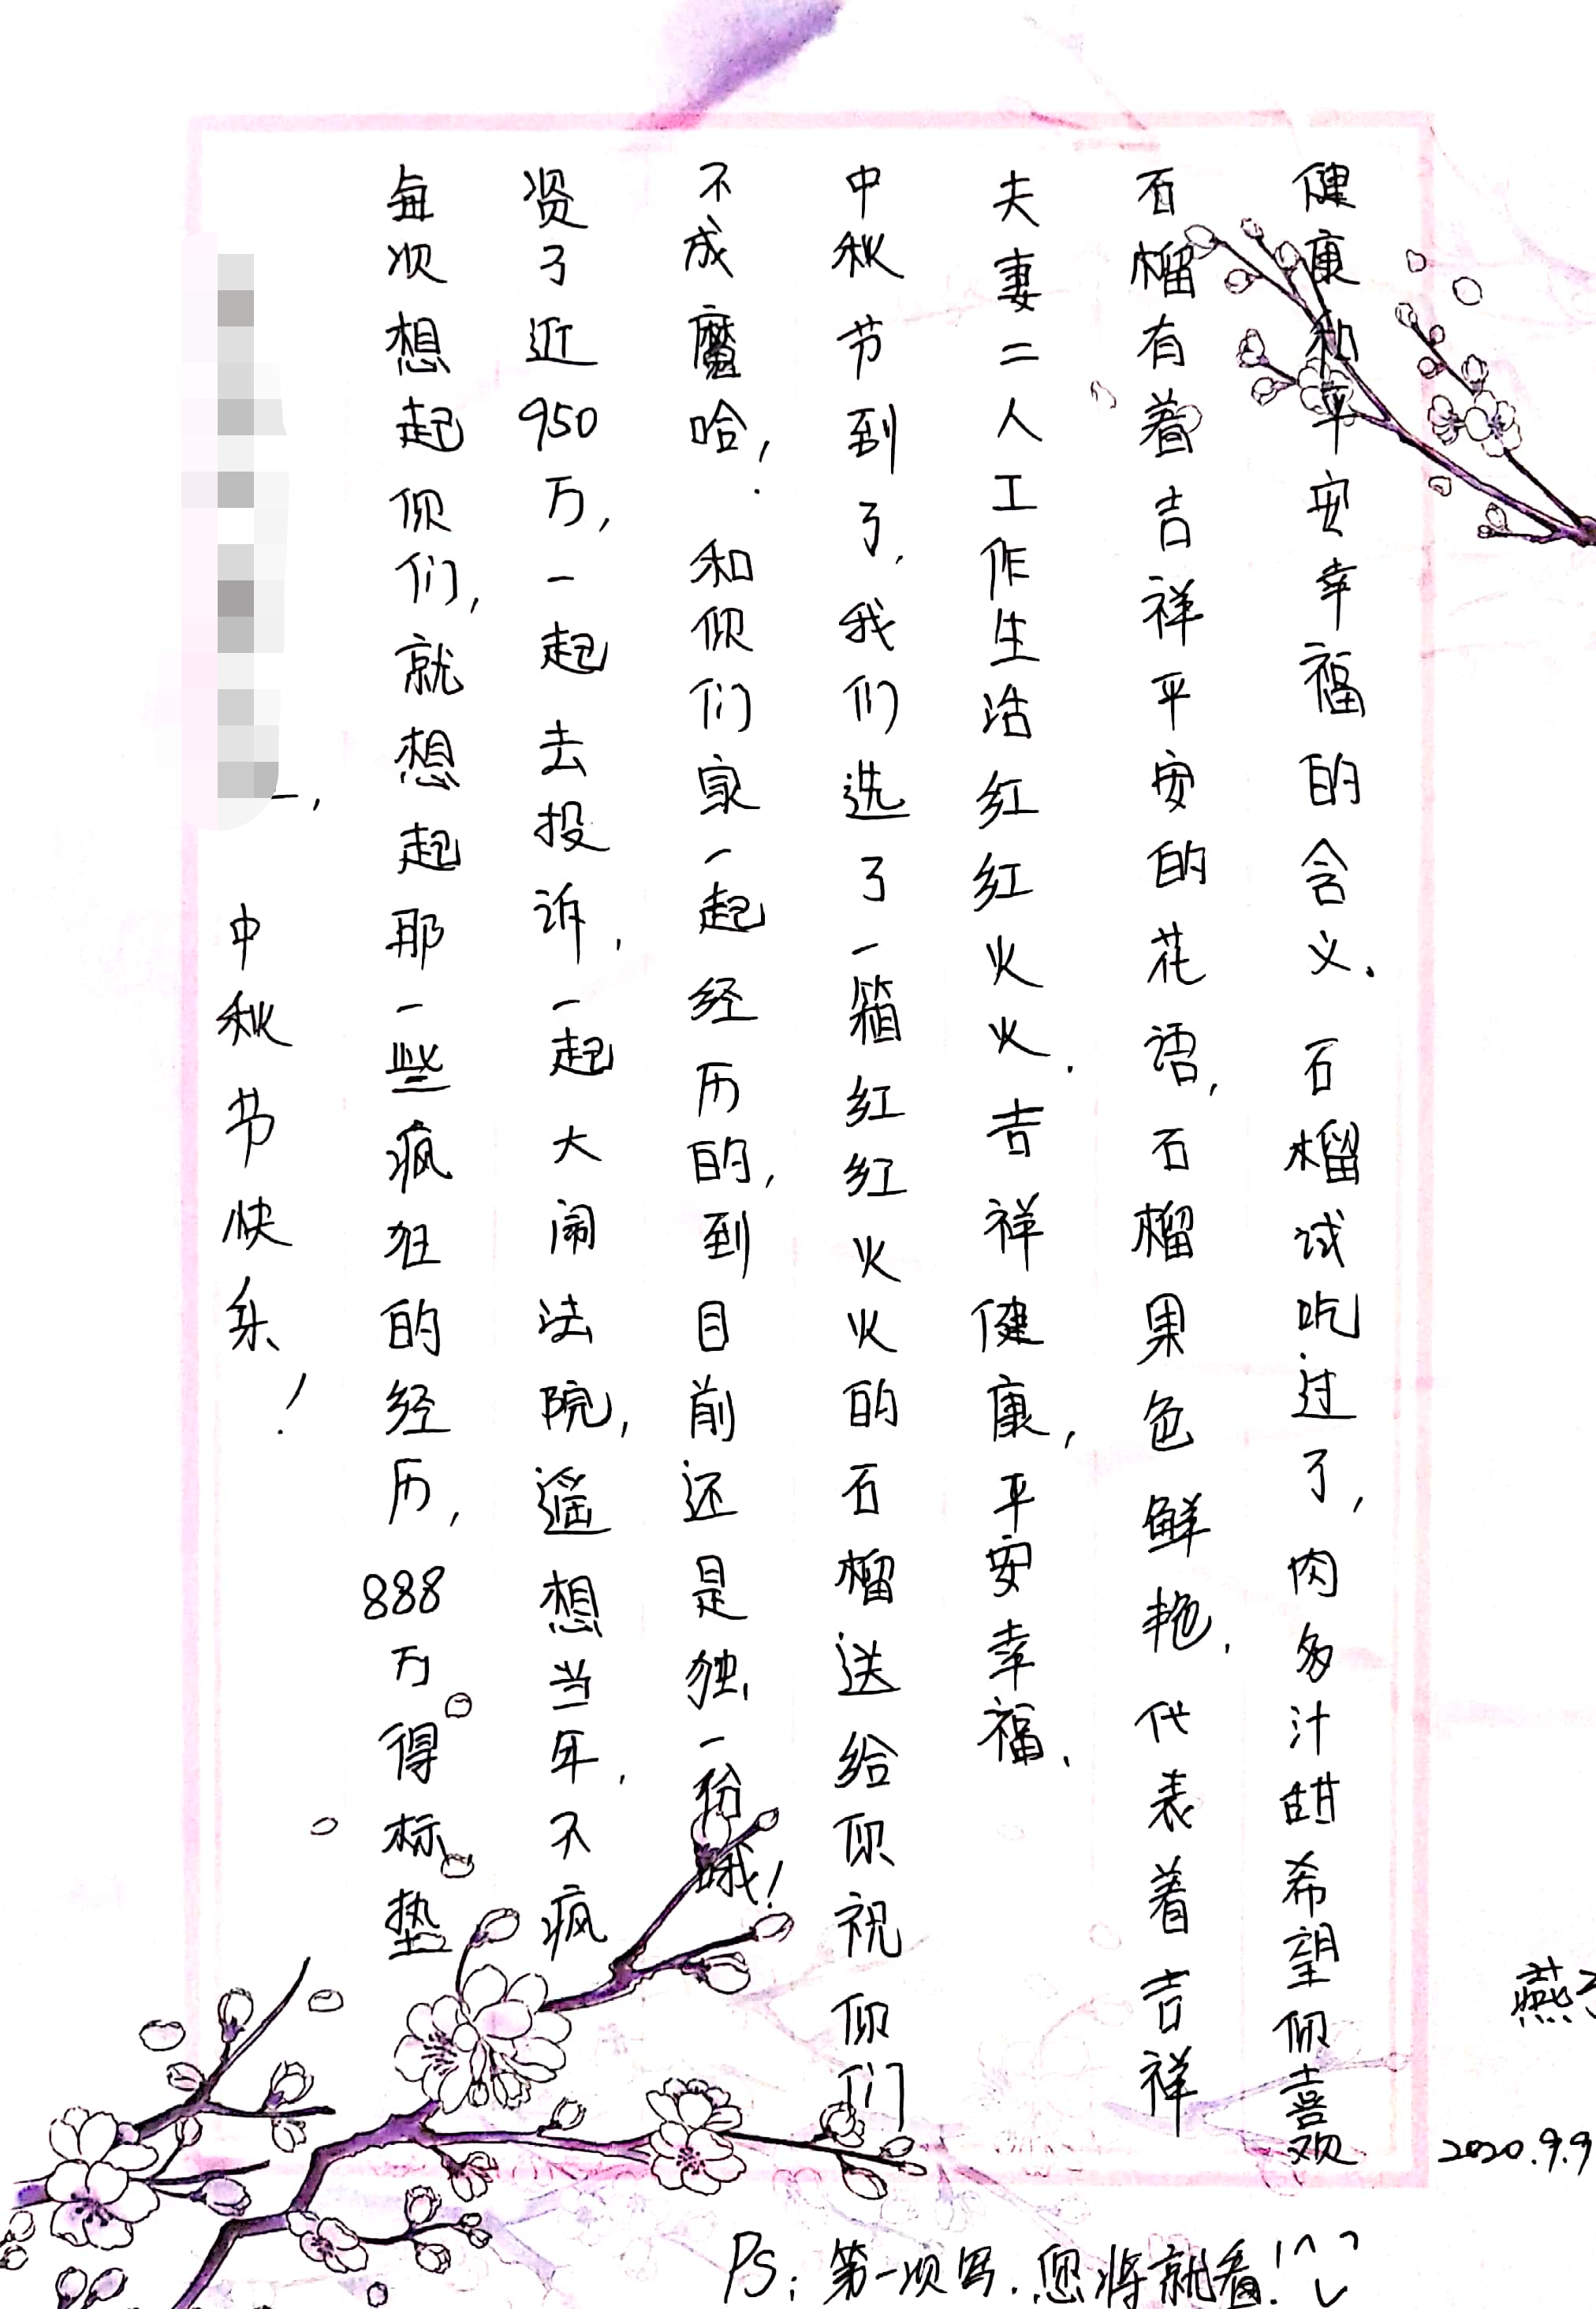 中秋节快乐!
每次想起你们,就想起那一些疯狂的经历,888万得标垫
资了近950万,一起去投诉,一起大闹法院,遥想当年,不疯
不成魔哈! 和你们家一起经历的,到目前还是独一份哦!
中秋节到了,我们选了一箱红红火火的石榴送给你祝你们
夫妻二人工作生活红红火火.吉祥健康,平安幸福.
石榴有着吉祥平安的花语,石榴果色鲜艳,代表着吉祥
健康和平安幸福的含义. 石榴试吃过了,肉多汁甜希望你喜欢
燕
2020.9.9
PS: 第一次写.您将就看!